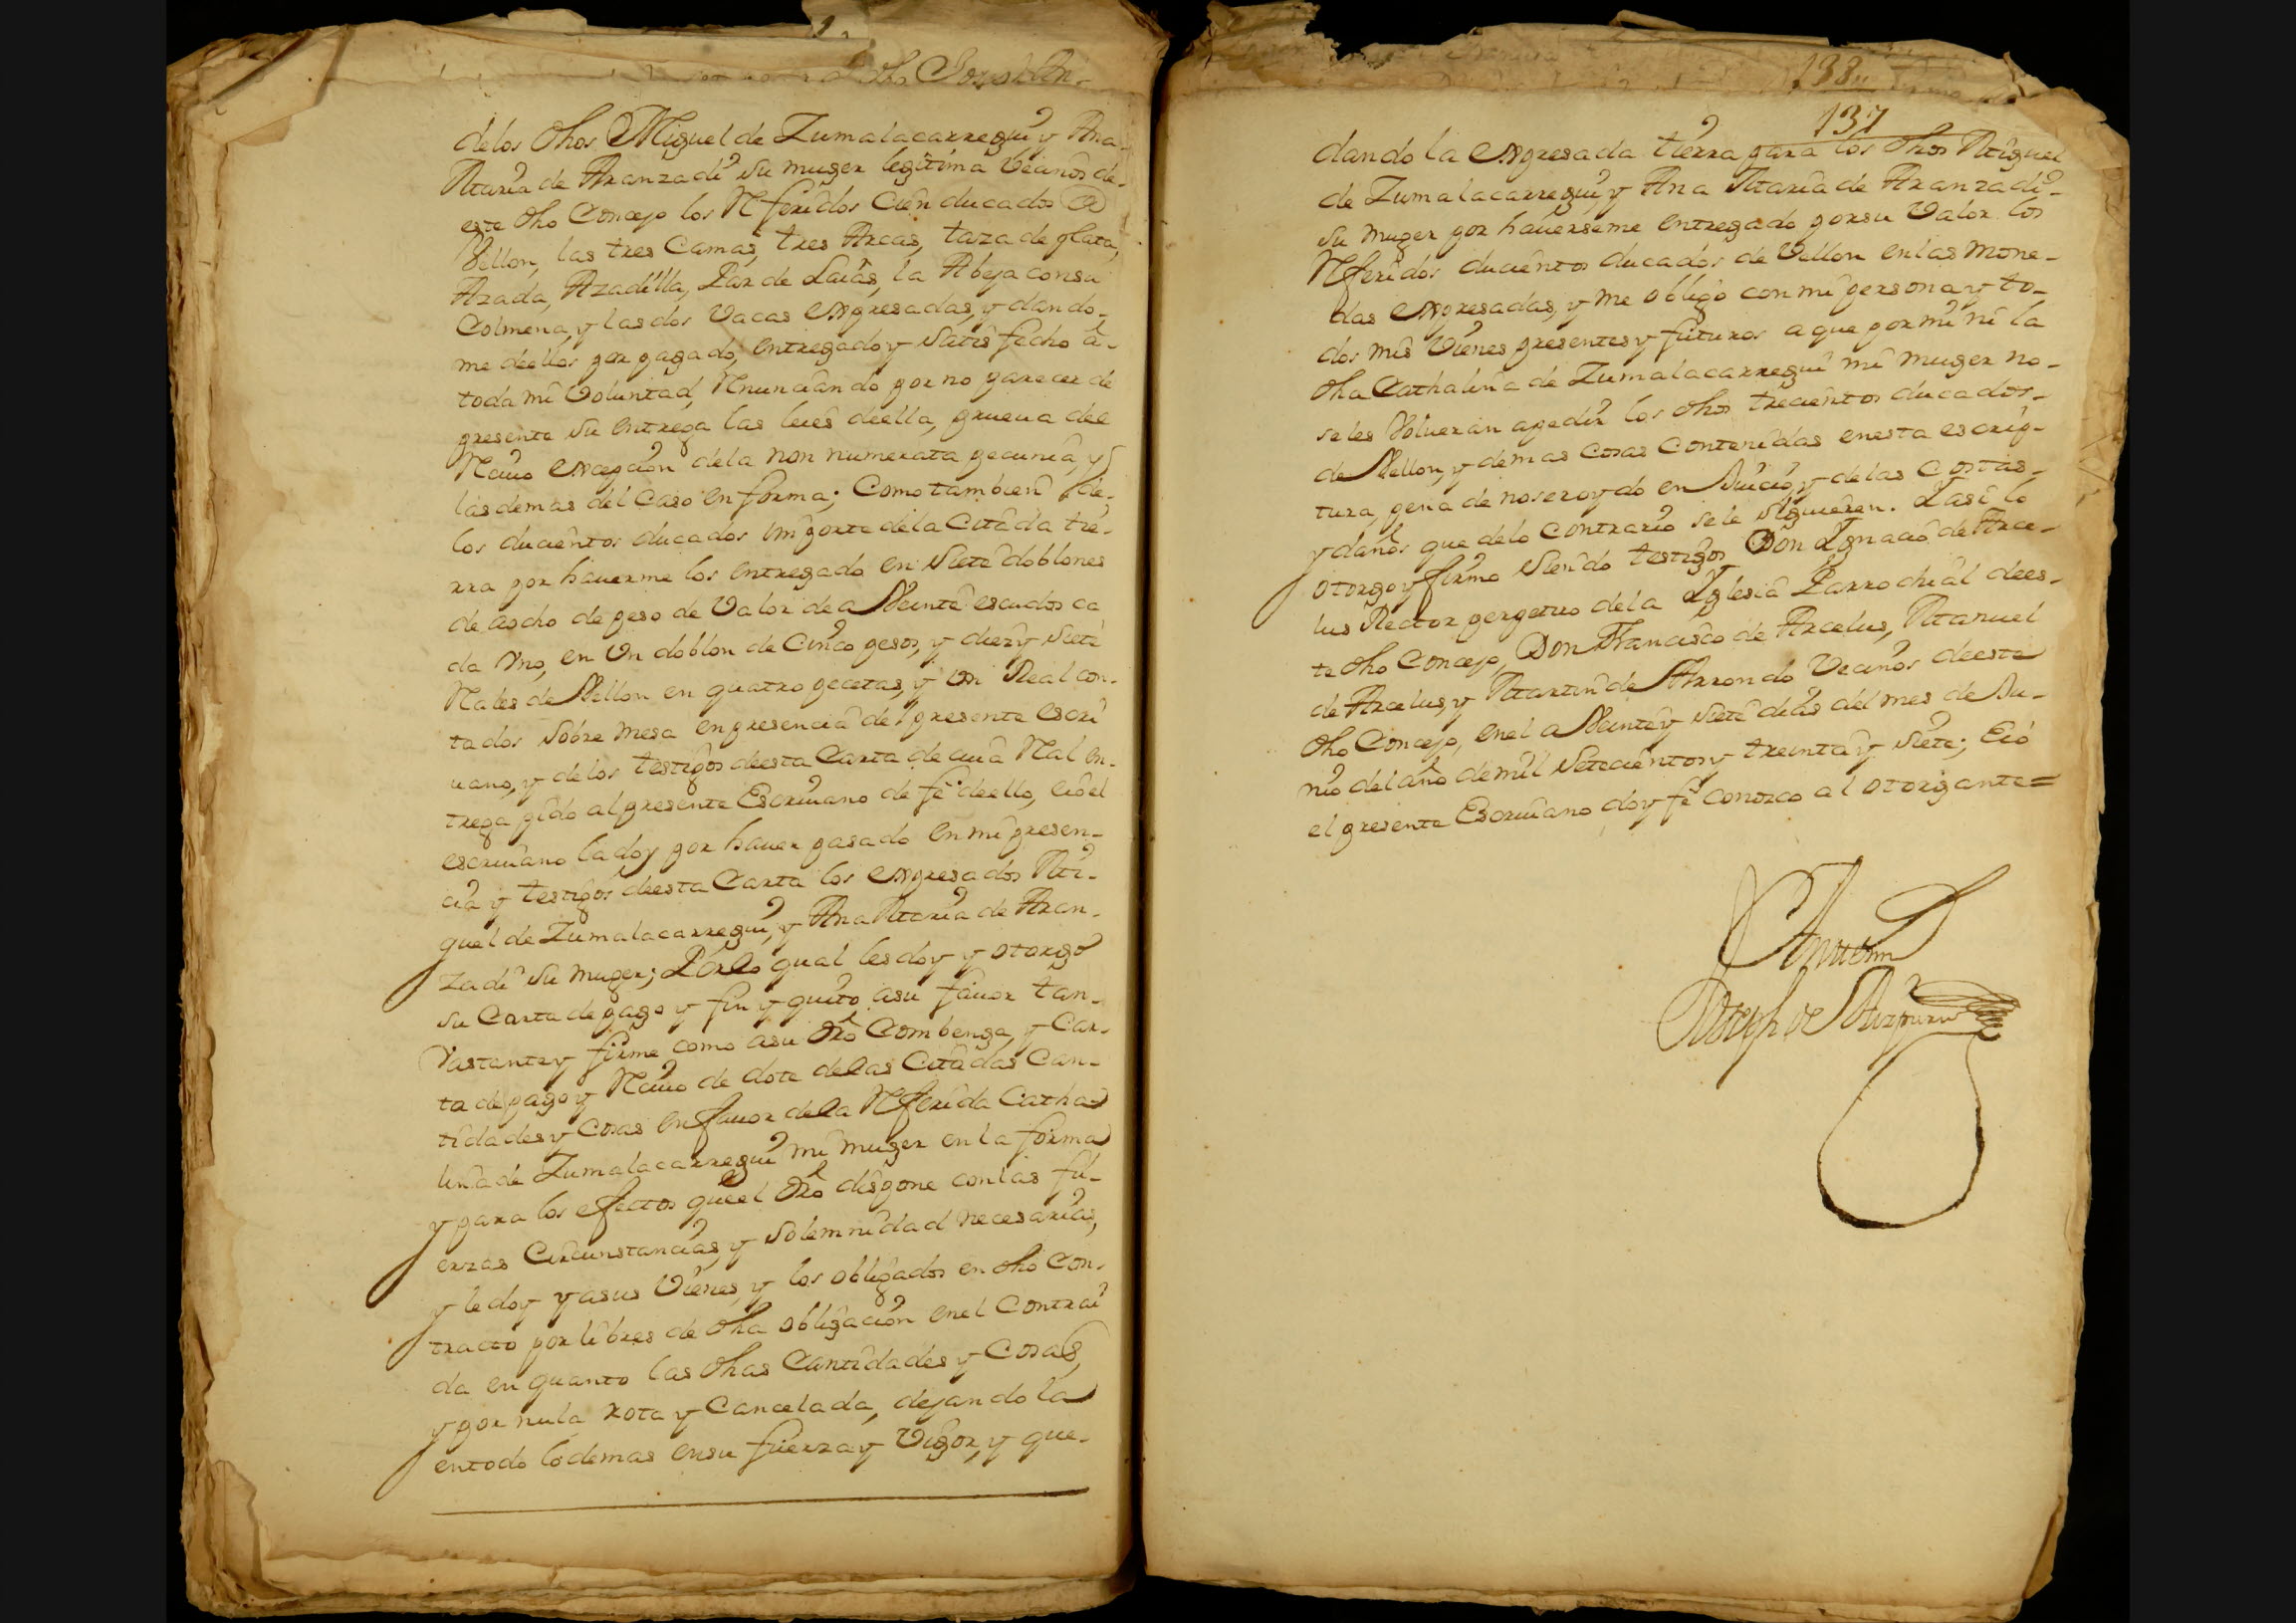 delos dhos Miguel de Zumalacarregui y Ana
Maria de Aranzadi su muger legitima Vecinos de
este dho Concejo los Rferidos Cien ducados de
Vellon, las tres Camas, tres Arcas, taza de plata,
Azada, Azadilla, Par de Laias, la Abeja con su
Colmena, y las dos Vacas expresadas, y dando
me de ellos por pagado, entregado y satisfecho a
toda mi Voluntad, Rnunciando por no parecer de
presente su entrega las leies de ella, prueua del
Reciuo excepcion dela non numerata pecunia, y
las demas del Caso en forma; Como tambien de
los ducientos ducados importe dela Citada tie-
rra por hauerme los entregado en siete doblones
de aocho de peso de Valor de a Veinte escudos ca
da Vno, en Vn doblon de Cinco pesos, y diez y siete
Rales de Vellon en quatro pecetas, y un Real con-
tados sobre mesa en presencia del presente escri
uano, y de los testigos de esta Carta de cuia Ral en-
trega pido al presente Escriuano de fe de ello, e io el
escriuano la doy por hauer pasado en mi presen-
cia y testigos de esta Carta los expresados Mi-
guel de Zumalacarregui, y Ana Maria de Aran-
zadi su muger; Por lo qual les doy y otorgo
su Carta de pago y fin y quito a su fauor tan
Vastante y firme como a su dro Combenga, y Car-
ta de pago y Reciuo de dote delas Citadas Can-
tidades y Cosas en fauor dela Rferida Catha
lina de Zumalacarregui mi muger en la forma
y para los efectos que el dro dispone con las fu-
erzas Circunstancias, y solemnidad necesarias,
y le doy y a sus Vienes, y los obligados en dho Con-
tracto por libres de dha obligacion enel Contrai
da en quanto las dhas Cantidades y Cosas,
y por nula rota y Cancelada, dejando la
en todo lo demas en su fuerza y Vigor, y que-
138
137
dando la expresada tierra para los dhos Miguel
de Zumalacarregui, y Ana Maria de Aranzadi
su muger por hauerseme entregado por su Valor los
Rferidos ducientos ducados de Vellon en las mone-
das expresadas, y me obligo con mi persona y to-
dos mis Vienes presentes y futuros a que por mi ni la
dha Cathalina de Zumalacarregui mi muger no
se les Volueran apedir los dhos trecientos ducados
de Vellon, y demas Cosas Contenidas en esta escrip-
tura, pena de no ser oydo en Juicio, y de las Costas
y daños que delo Contrario se le siguieren. Y asi lo
otorgo y firmo siendo testigos Don Ygnacio de Arce-
lus Rector perpetuo dela Yglesia Parrochial de es-
te dho Concejo, Don Francisco de Arcelus, Manuel
de Arcelus, y Martin de Arrondo Vecinos de este
dho Concejo, enel a Veinte y siete dias del mes de Ju-
nio del año de mil setecientos y treinta y siete; E io
el presente Escriuano doy fe conozco al otorgante=
Joseph de Aizpuru